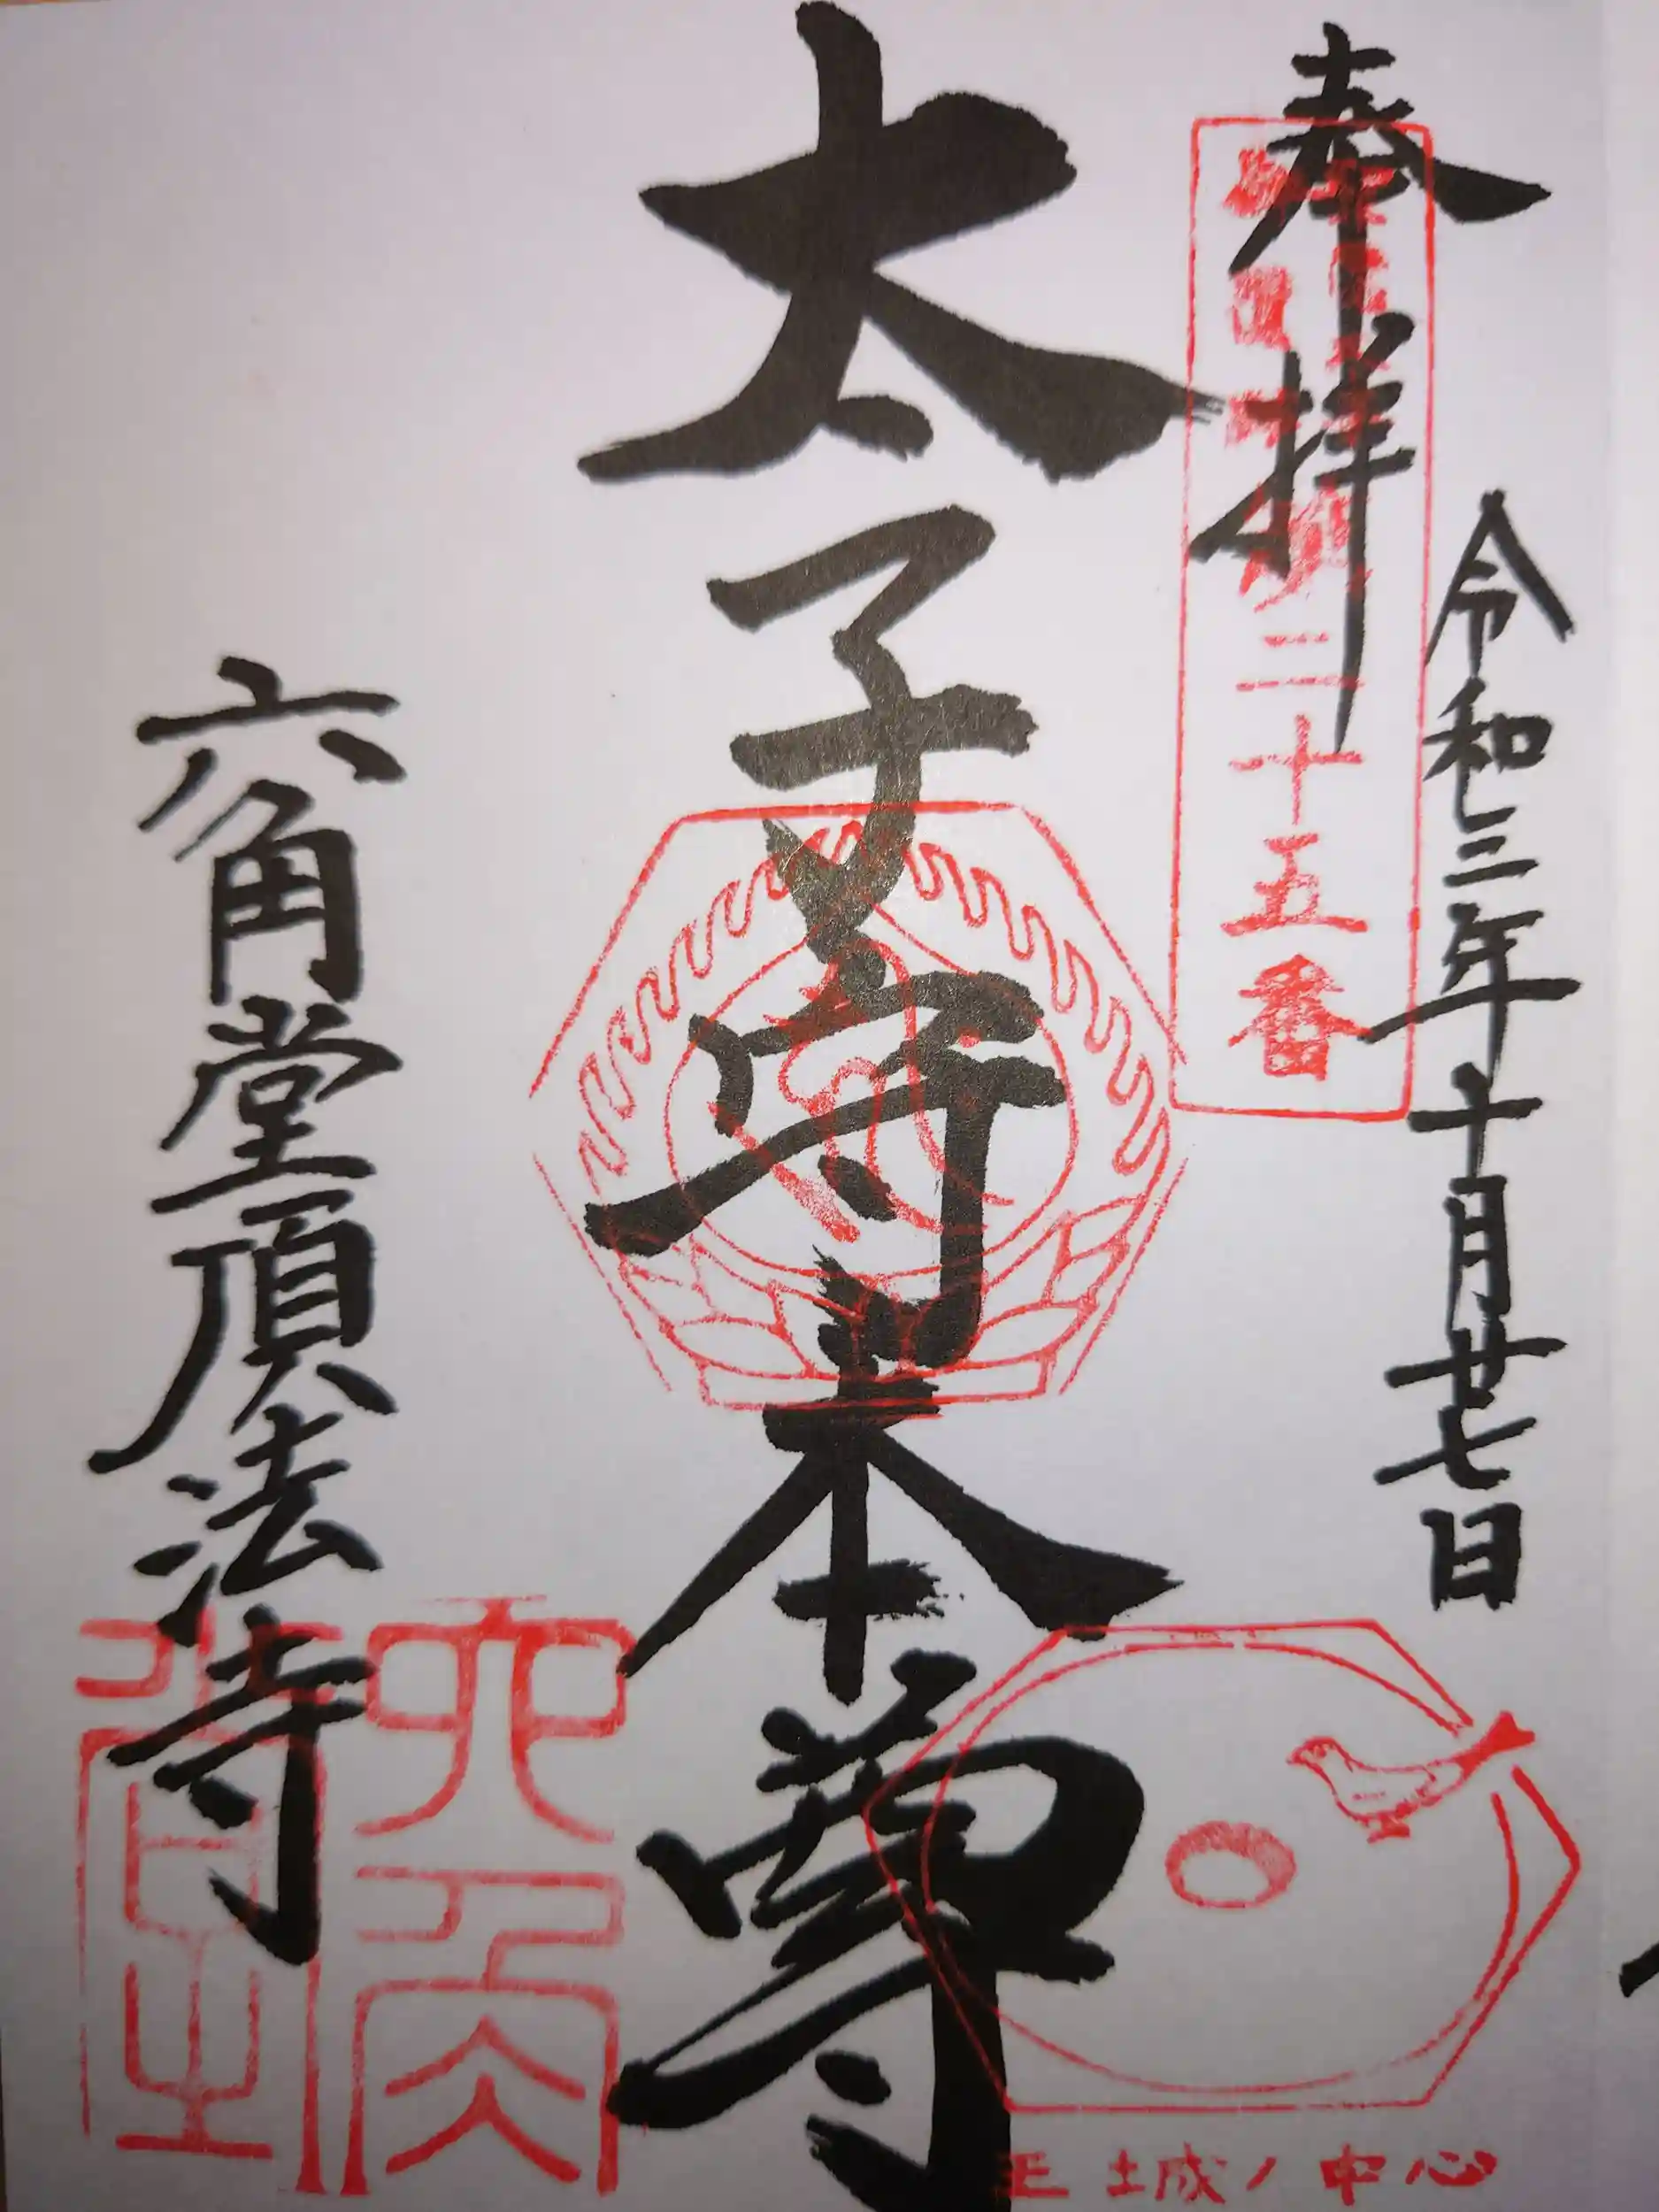 奉拝
令和三年十月廿七日
三十五番
太子守本尊
六角堂頂法寺
六角堂
王城ノ中心